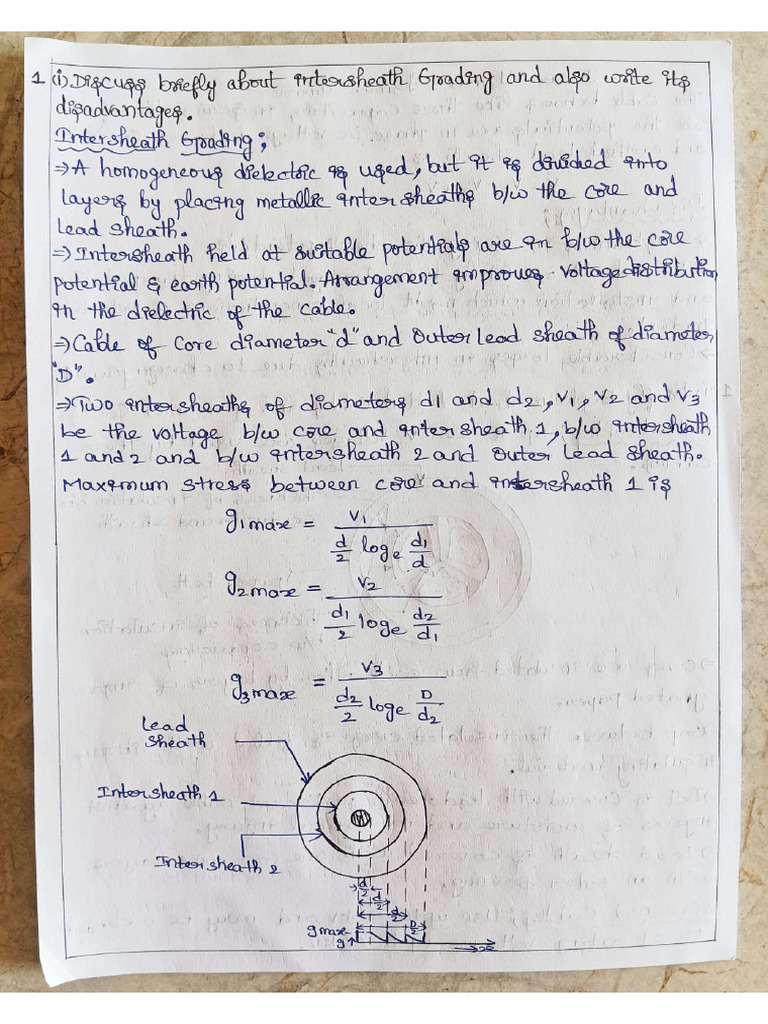 1 (i) Discuss briefly about intersheath Grading and also write its
disadvantages.
Intersheath Grading;
⇒ A homogeneous dielectric is used, but it is divided into
layers by placing metallic inter sheaths b/w the core and
lead sheath.
⇒ Intersheath held at suitable potentials are in b/w the core
potential & earth potential. Arrangement improves voltage distribution
in the dielectric of the cable.
⇒ Cable of core diameter "d" and outer lead sheath of diameter
"D".
⇒ Two intersheaths of diameters d1 and d2, V1, V2 and V3
be the voltage b/w core and inter sheath 1, b/w intersheath
1 and 2 and b/w intersheath 2 and outer lead sheath.
Maximum stress between core and intersheath 1 is
g1max = V1 / (d/2 loge d1/d)
g2max = V2 / (d1/2 loge d2/d1)
g3max = V3 / (d2/2 loge D/d2)
Lead
Sheath
Intersheath 1
Inter sheath 2
d/2
d/2
d/2
D/2
gmax
g↑
→x